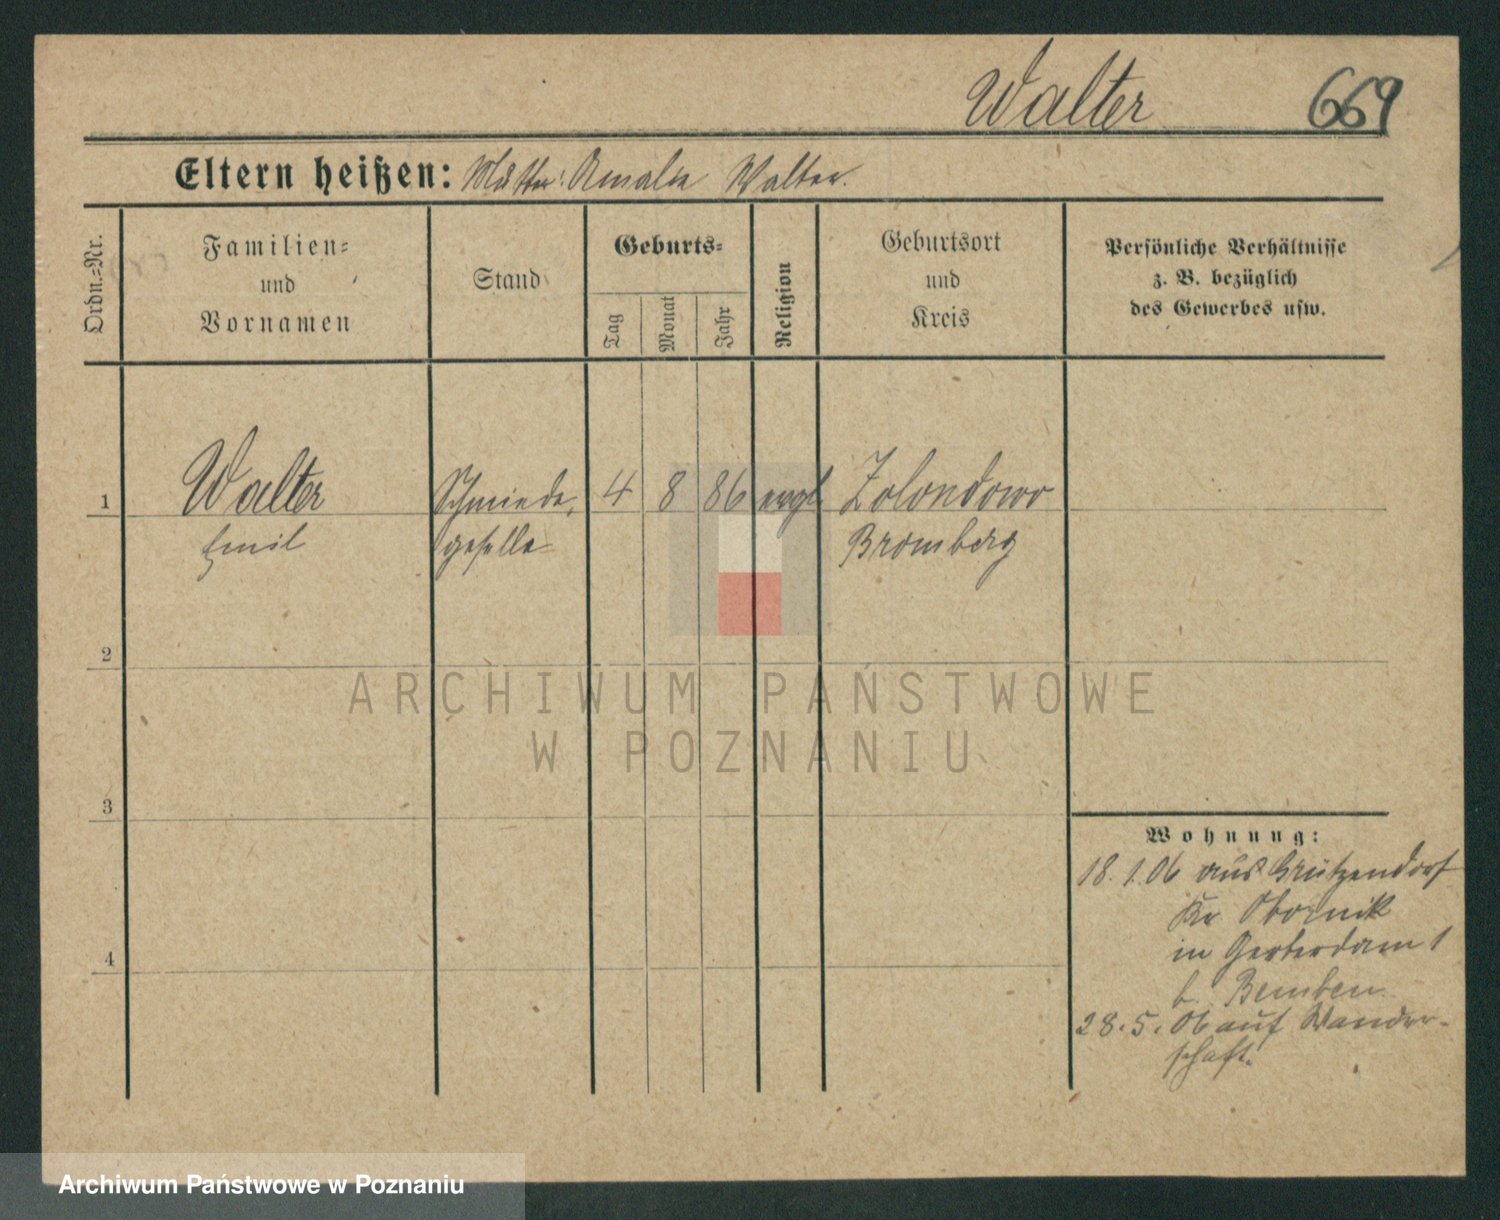 Walter 669
Eltern heißen: Mutter: Amalie Walter.
Ordn.-Nr.
Familien-
und
Vornamen
Stand
Geburts-
Tag
Monat
Jahr
Religion
Geburtsort
und
Kreis
Persönliche Verhältnisse
z. B. bezüglich
des Gewerbes usw.
1 Walter Schmiede- 4 8 86 evgl. Zolondowo
Emil geselle Bromberg
2
ARCHIWUM PAŃSTWOWE
W POZNANIU
3
Wohnung:
18.1.06 aus Grützendorf
Kr. Obornik
in Gerberdamm 1
b. Bemben
4
28.5.06 auf Wander-
schaft.
Archiwum Państwowe w Poznaniu